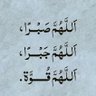 اَللّٰهُمَّ صَبْرًا،
اَللّٰهُمَّ جَبْرًا،
اَللّٰهُمَّ قُوَّةً.